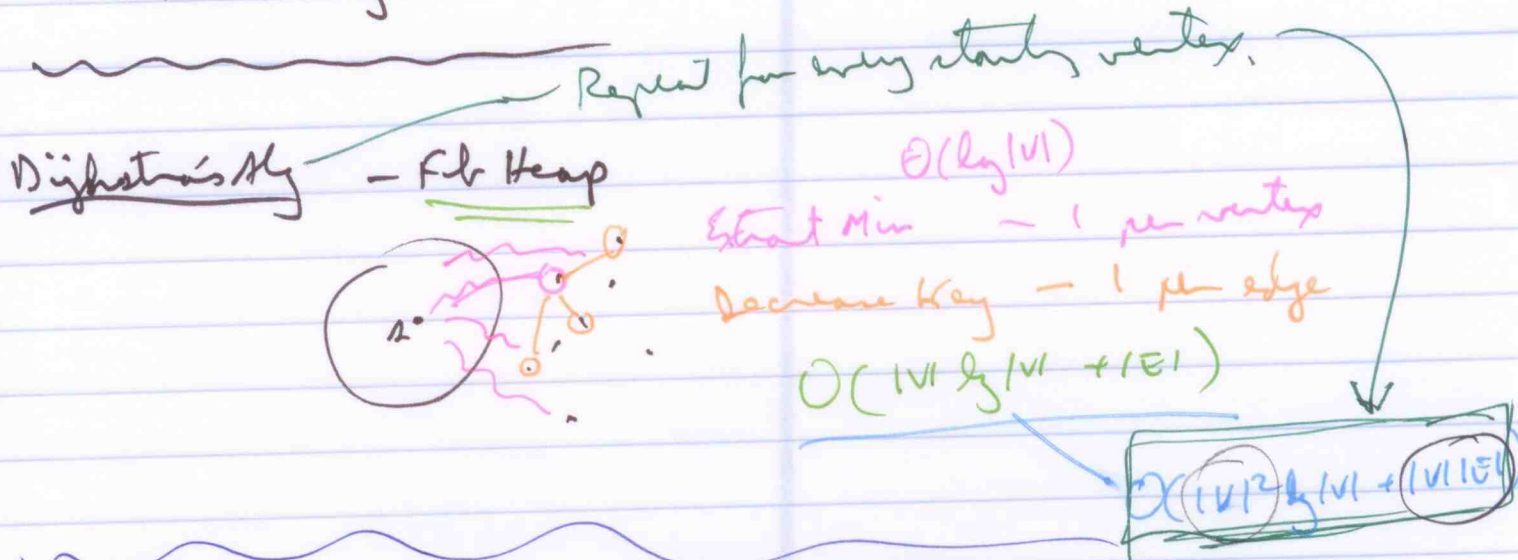 Repeat for every starting vertex.
Dijkstra's Alg - Fib Heap
Θ(lg|V|)
Extract Min - 1 per vertex
Decrease Key - 1 per edge
s
O(|V| lg|V| + |E|)
O(|V|² lg|V| + |V||E|)